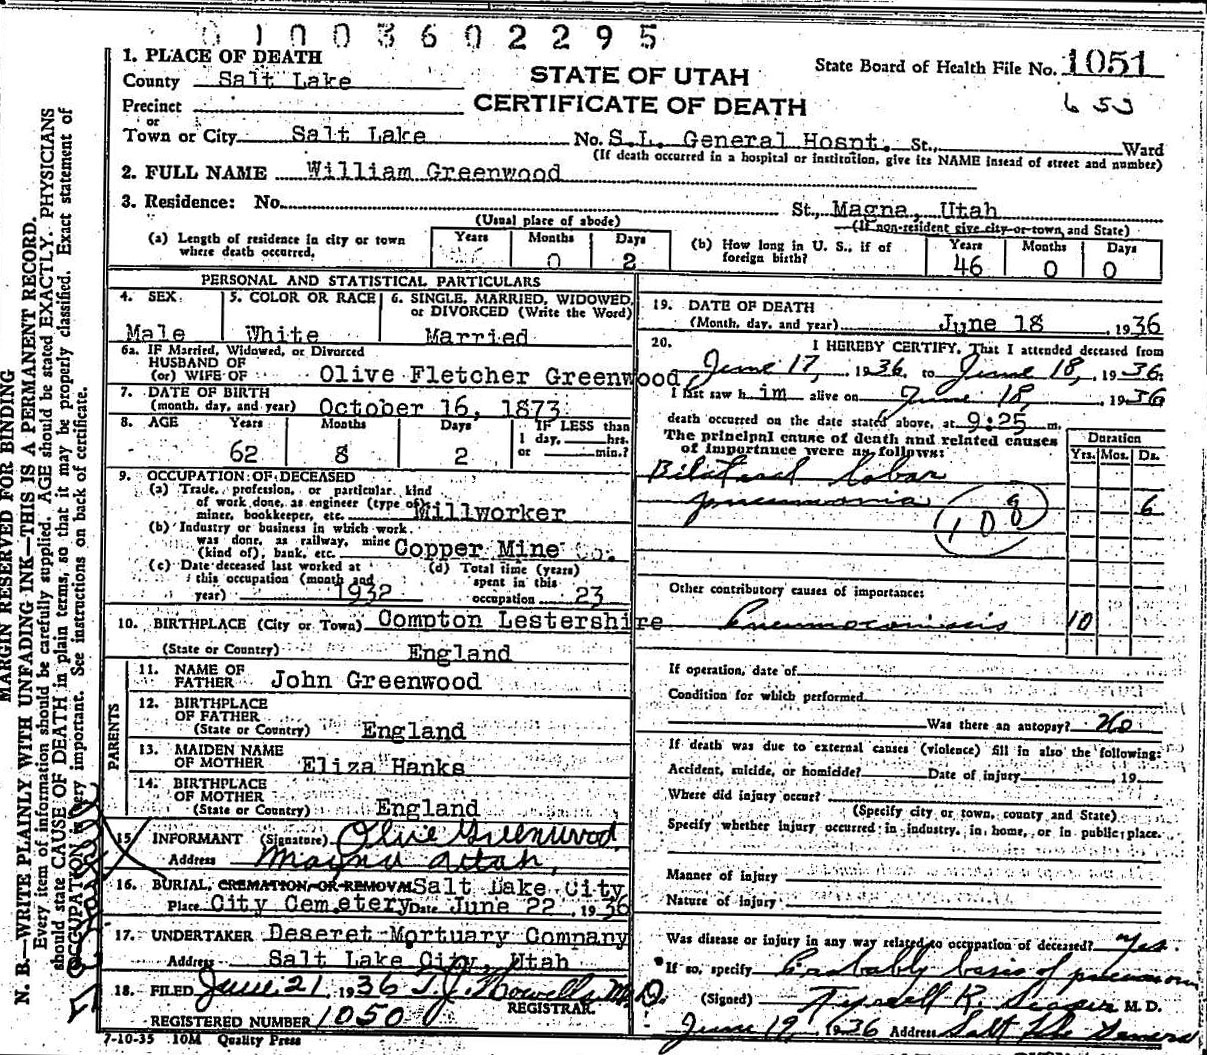 0 1 0 0 3 6 0 2 2 9 5
1. PLACE OF DEATH
County Salt Lake
STATE OF UTAH
CERTIFICATE OF DEATH
State Board of Health File No. 1051
Precinct
or
Town or City Salt Lake No. S.L. General Hospt. St., Ward
(If death occurred in a hospital or institution, give its NAME insead of street and number)
2. FULL NAME William Greenwood
3. Residence: No. St., Magna, Utah
(Usual place of abode) (If non-resident give city or town and State)
(a) Length of residence in city or town where death occurred. Years Months 0 Days 2
(b) How long in U. S., if of foreign birth? Years 46 Months 0 Days 0
PERSONAL AND STATISTICAL PARTICULARS
4. SEX Male
5. COLOR OR RACE White
6. SINGLE, MARRIED, WIDOWED, or DIVORCED (Write the Word) Married
6a. IF Married, Widowed, or Divorced
HUSBAND OF
(or) WIFE OF Olive Fletcher Greenwood
7. DATE OF BIRTH
(month, day, and year) October 16, 1873
8. AGE Years 62 Months 8 Days 2 IF LESS than 1 day, hrs. or min.?
9. OCCUPATION OF DECEASED
(a) Trade, profession, or particular kind
of work done, as engineer (type of)
miner, bookkeeper, etc. Millworker
(b) Industry or business in which work
was done, as railway, mine
(kind of), bank, etc. Copper Mine Co.
(c) Date deceased last worked at
this occupation (month and
year) 1932
(d) Total time (years)
spent in this
occupation 23
10. BIRTHPLACE (City or Town) Compton Lestershire
(State or Country) England
PARENTS
11. NAME OF
FATHER John Greenwood
12. BIRTHPLACE
OF FATHER
(State or Country) England
13. MAIDEN NAME
OF MOTHER Eliza Hanks
14. BIRTHPLACE
OF MOTHER
(State or Country) England
15. INFORMANT (Signature) Olive Greenwood
Address Magna Utah,
16. BURIAL, CREMATION, OR REMOVAL Salt Lake City
Place City Cemetery Date June 22, 1936
17. UNDERTAKER Deseret Mortuary Company
Address Salt Lake City, Utah
18. FILED June 21, 1936 T.J. Howells, M.D.
REGISTRAR.
REGISTERED NUMBER 1050
7-10-35 10M Quality Press
19. DATE OF DEATH
(Month, day, and year) June 18, 1936
20. I HEREBY CERTIFY, That I attended deceased from
June 17, 1936, to June 18, 1936
I last saw h im alive on June 18, 1936
death occurred on the date stated above, at 9:25 m.
The principal cause of death and related causes
of importance were as follows:
Duration
Yrs. Mos. Ds.
Bilateral Lobar
pneumonia 6
108
Other contributory causes of importance:
Pneumoconiosis 10
If operation, date of
Condition for which performed
Was there an autopsy? No
If death was due to external causes (violence) fill in also the following:
Accident, suicide, or homicide? Date of injury , 19
Where did injury occur?
(Specify city or town, county and State)
Specify whether injury occurred in industry, in home, or in public place.
Manner of injury
Nature of injury
Was disease or injury in any way related to occupation of deceased? Yes.
If so, specify Probably basis of
(Signed) R. M. D.
June 19, 1936 Address Salt Lake
MARGIN RESERVED FOR BINDING
N. B.—WRITE PLAINLY WITH UNFADING INK—THIS IS A PERMANENT RECORD.
Every item of information should be carefully supplied. AGE should be stated EXACTLY. PHYSICIANS
should state CAUSE OF DEATH in plain terms, so that it may be properly classified. Exact statement of
OCCUPATION is very important. See instructions on back of certificate.